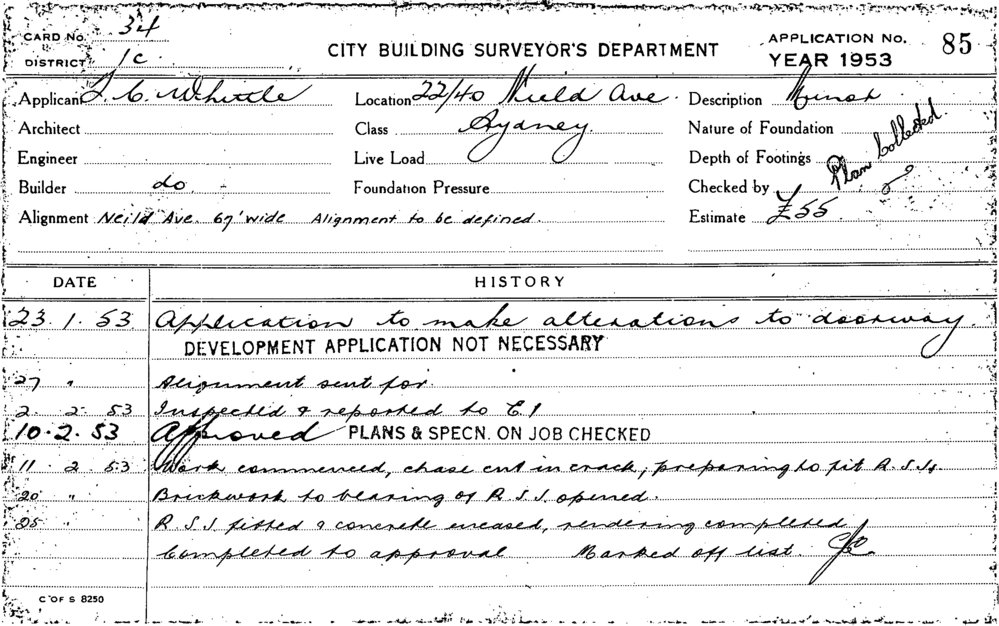 CARD No. 34
DISTRICT 1c
CITY BUILDING SURVEYOR'S DEPARTMENT
APPLICATION No. 85
YEAR 1953
Applicant C. Whittle Location 22/40 Nield Ave. Description Minor
Architect Class Sydney. Nature of Foundation
Engineer Live Load Depth of Footings
Builder do. Foundation Pressure Checked by
Plan Collected.
Alignment Neild Ave. 67' wide Alignment to be defined. Estimate £55
DATE HISTORY
23.1.53 Application to make alterations to doorway.
DEVELOPMENT APPLICATION NOT NECESSARY
27 " Alignment sent for.
2. 2. 53 Inspected & reported to
10.2.53 Approved PLANS & SPECN. ON JOB CHECKED
11. 2. 53 Work commenced, chase cut in crack, preparing to fit R.S.Js.
20 " Brickwork to bearing of R.S.J. opened.
25 " R.S.J. fitted & concrete encased, rendering completed
Completed to approval Marked off list.
C OF S 8250